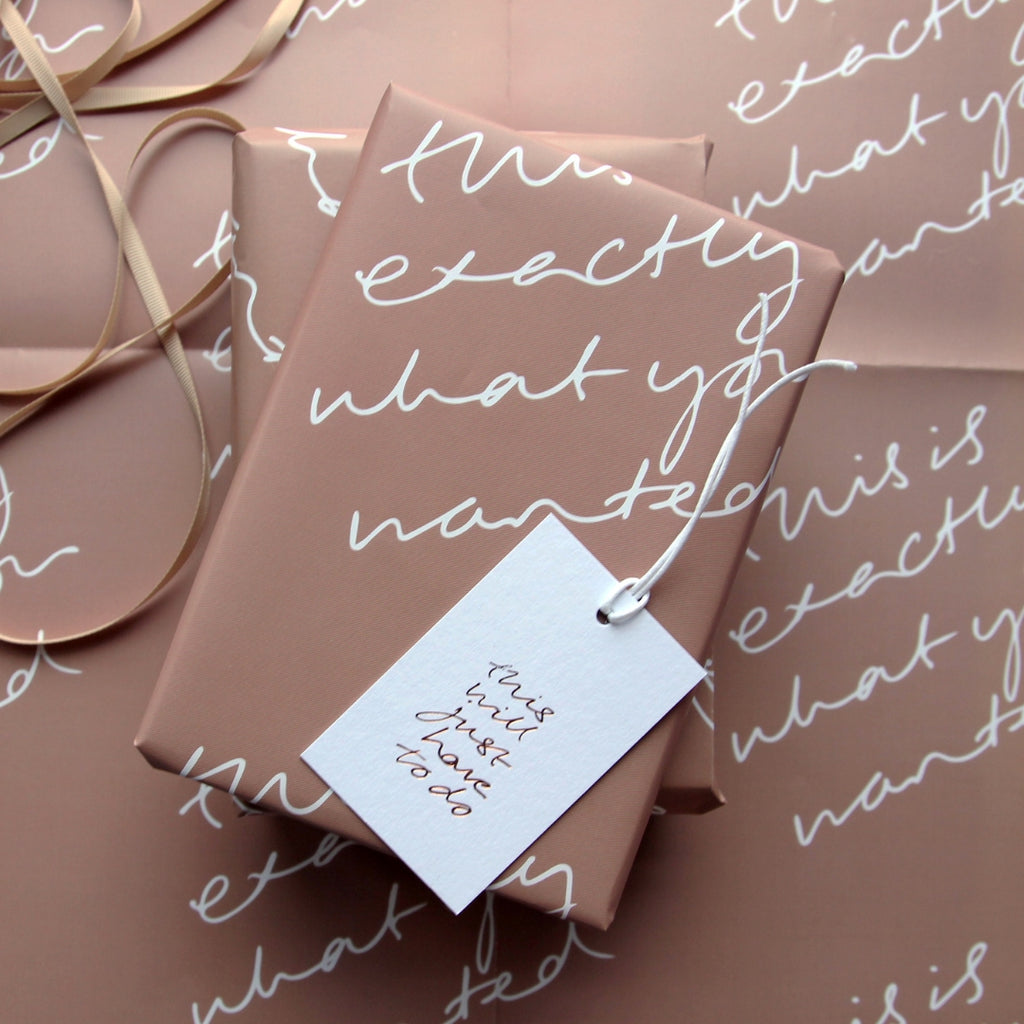 this
exactly
what you
wanted
this
will
just
have
to do
exactly
what you
wanted
this is
exactly
what y
wante
this
exa
y
what
ted
is is